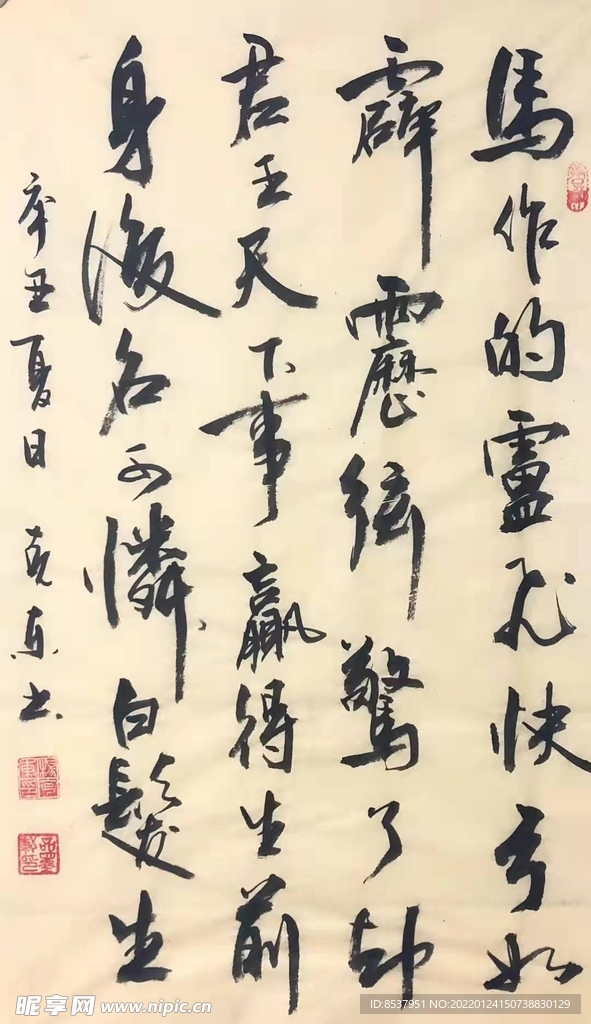 馬作的盧飛快弓如
霹靂絃驚了却
君王天下事贏得生前
身後名可憐白髮生
辛丑夏日 克东书
昵享网 www.nipic.cn
ID:8537951 NO:20220124150738830129